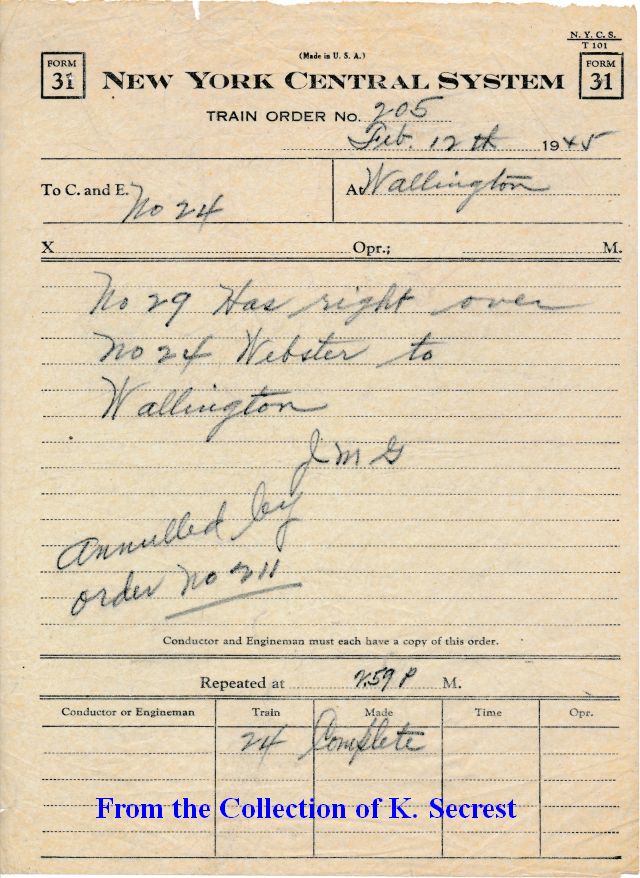 N. Y. C. S.
T 101
(Made in U. S. A.)
FORM 31
NEW YORK CENTRAL SYSTEM
FORM 31
TRAIN ORDER No. 205
Feb. 12th 1945
To C. and E. No 24
At Wallington
X Opr.; M.
No 29 Has right over
No 24 Webster to
Wallington
J M G
Annulled by
order No 211
Conductor and Engineman must each have a copy of this order.
Repeated at 2.59 P M.
Conductor or Engineman Train Made Time Opr.
24 Complete
From the Collection of K. Secrest